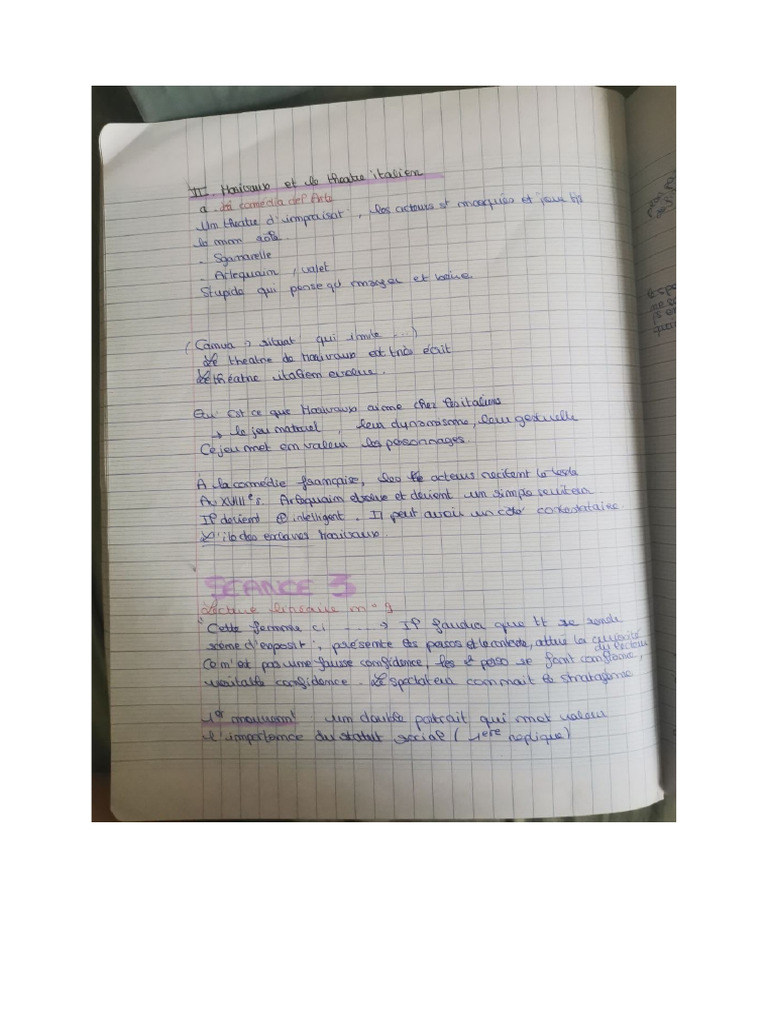 II. Marivaux et le theatre italien
a. La comédia del Arte
Um théatre d'improisat°, les acteurs st masqués et joue tjs
le mm rôle.
- Sganarelle
- Arlequain, valet
Stupide qui pense qu' manger et boire
(Canva → situat° qui imite ...)
Le theatre de Marivaux est très écrit
Le théatre italien evolue.
Qu'est ce que Marivaux aime chez les italiens
→ le jeu naturel, leur dynamisme, leur gestuelle
Ce jeu met en valeur les personnages.
À la comédie française, les acteurs recitent le texte
Au XVIIIe s. Arlequain evolue et devient um simple serviteur
Il devient ⊕ intelligent. Il peut avoir un côté contestataire.
L'île des esclaves Marivaux.
SEANCE 3
Lecture linéaire n°9
"Cette femme ci ...→ Il faudra que tt se rende
scène d'exposit°, présente les persos et le contexte, attire la curiosité
du lecteur
Ce n'est pas une fausse confidence, les 2 perso se font confiance,
veritable confidence. Le spectateur connait le stratagème
1er mouvmt : um double portrait qui met valeur
l'importance du statut social (1ere replique)